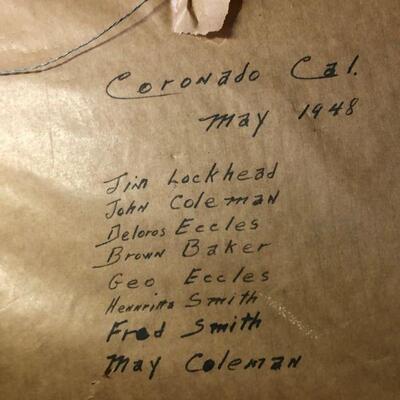 Coronado Cal.
May 1948
Jim Lockhead
John Coleman
Deloros Eccles
Brown Baker
Geo Eccles
Hennritta Smith
Fred Smith
May Coleman